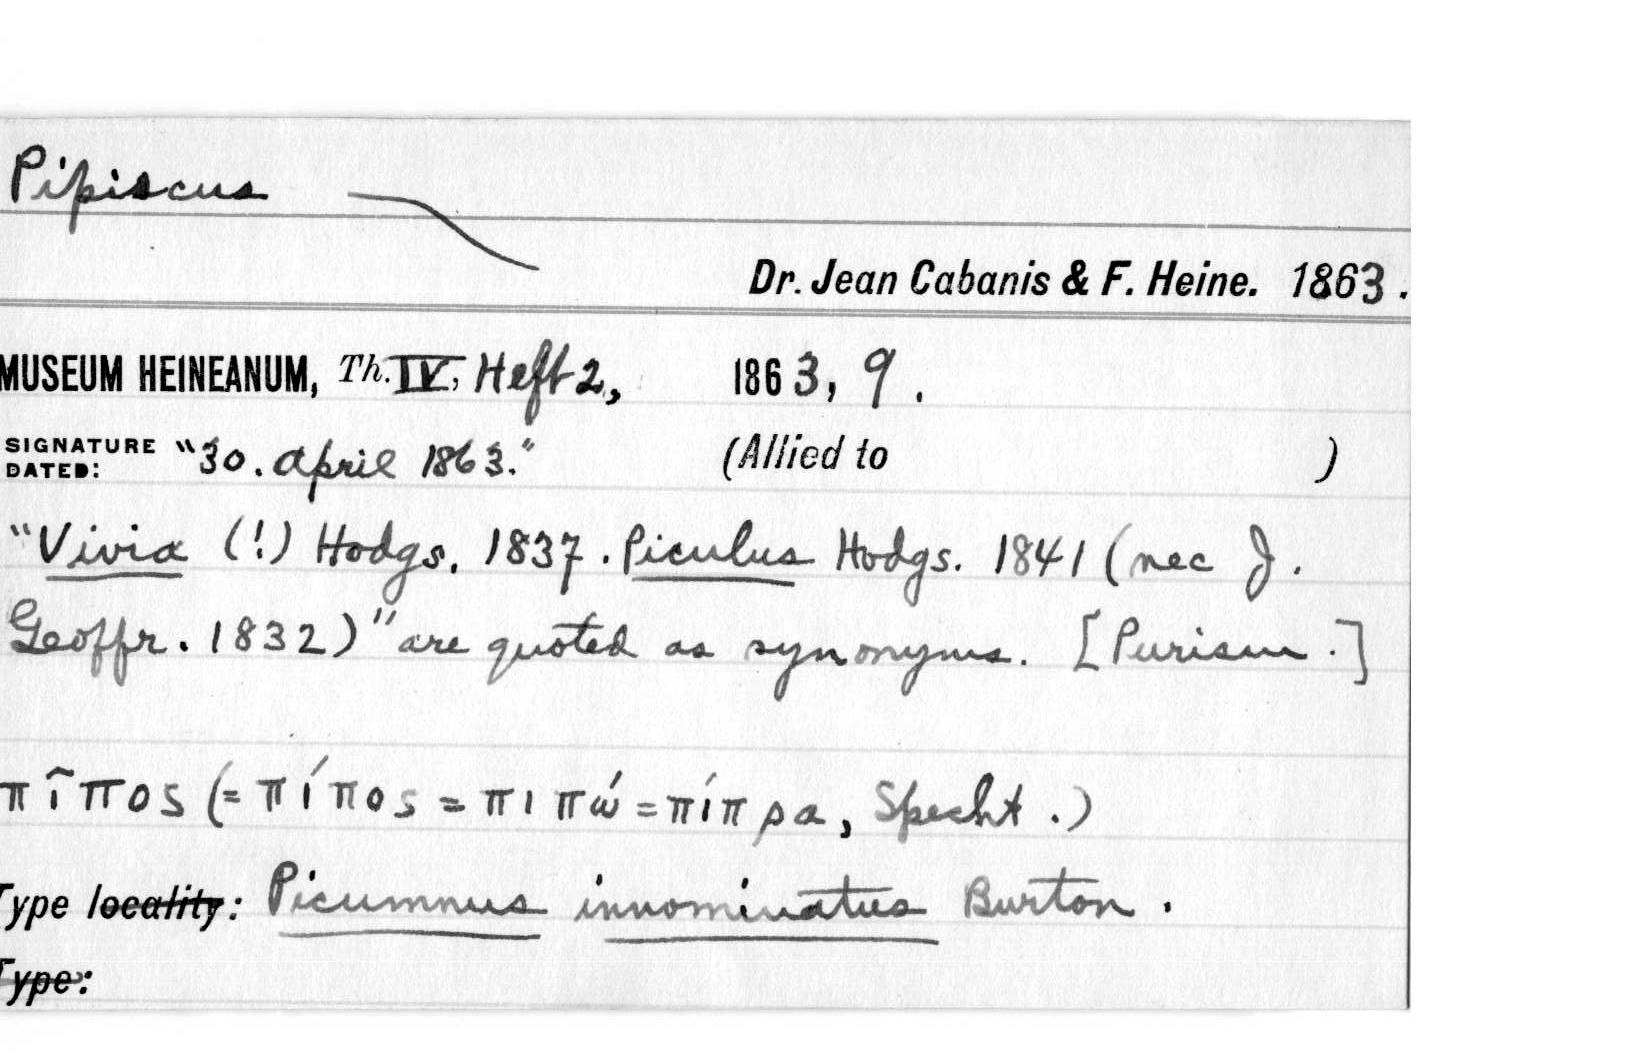 Pipiscus
Dr. Jean Cabanis & F. Heine. 1863.
MUSEUM HEINEANUM, Th. IV, Heft 2, 1863, 9.
SIGNATURE DATED: "30. April 1863." (Allied to )
"Vivia (!) Hodgs. 1837. Piculus Hodgs. 1841 (nec J.
Geoffr. 1832)" are quoted as synonyms. [Purism.]
πῖπος (= πίπος = πιπώ = πίπρα, Specht.)
Type locality: Picumnus innominatus Burton.
Type: